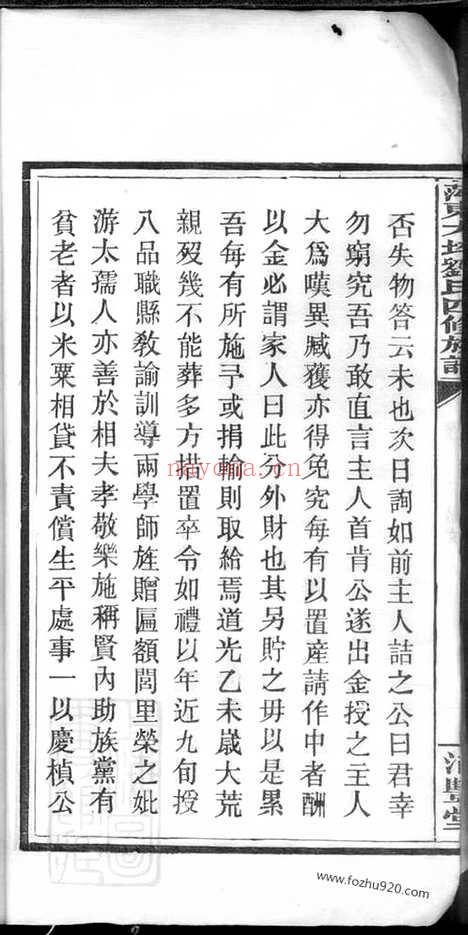 劉氏四修族譜
清豐堂
否失物答云未也次日詢如前主人詰之公曰君幸
勿窮究吾乃敢直言主人首肯公遂出金授之主人
大為嘆異臧獲亦得免究每有以置產請作中者酬
以金必謂家人曰此分外財也其另貯之毋以是累
吾每有所施予或捐輸則取給焉道光乙未歲大荒
親歿幾不能葬多方措置卒令如禮以年近九旬授
八品職縣敎諭訓導兩學師旌贈匾額閭里榮之妣
游太孺人亦善於相夫孝敬樂施稱賢內助族黨有
貧老者以米粟相貸不責償生平處事一以慶楨公
nayona.cn
www.fozhu920.com